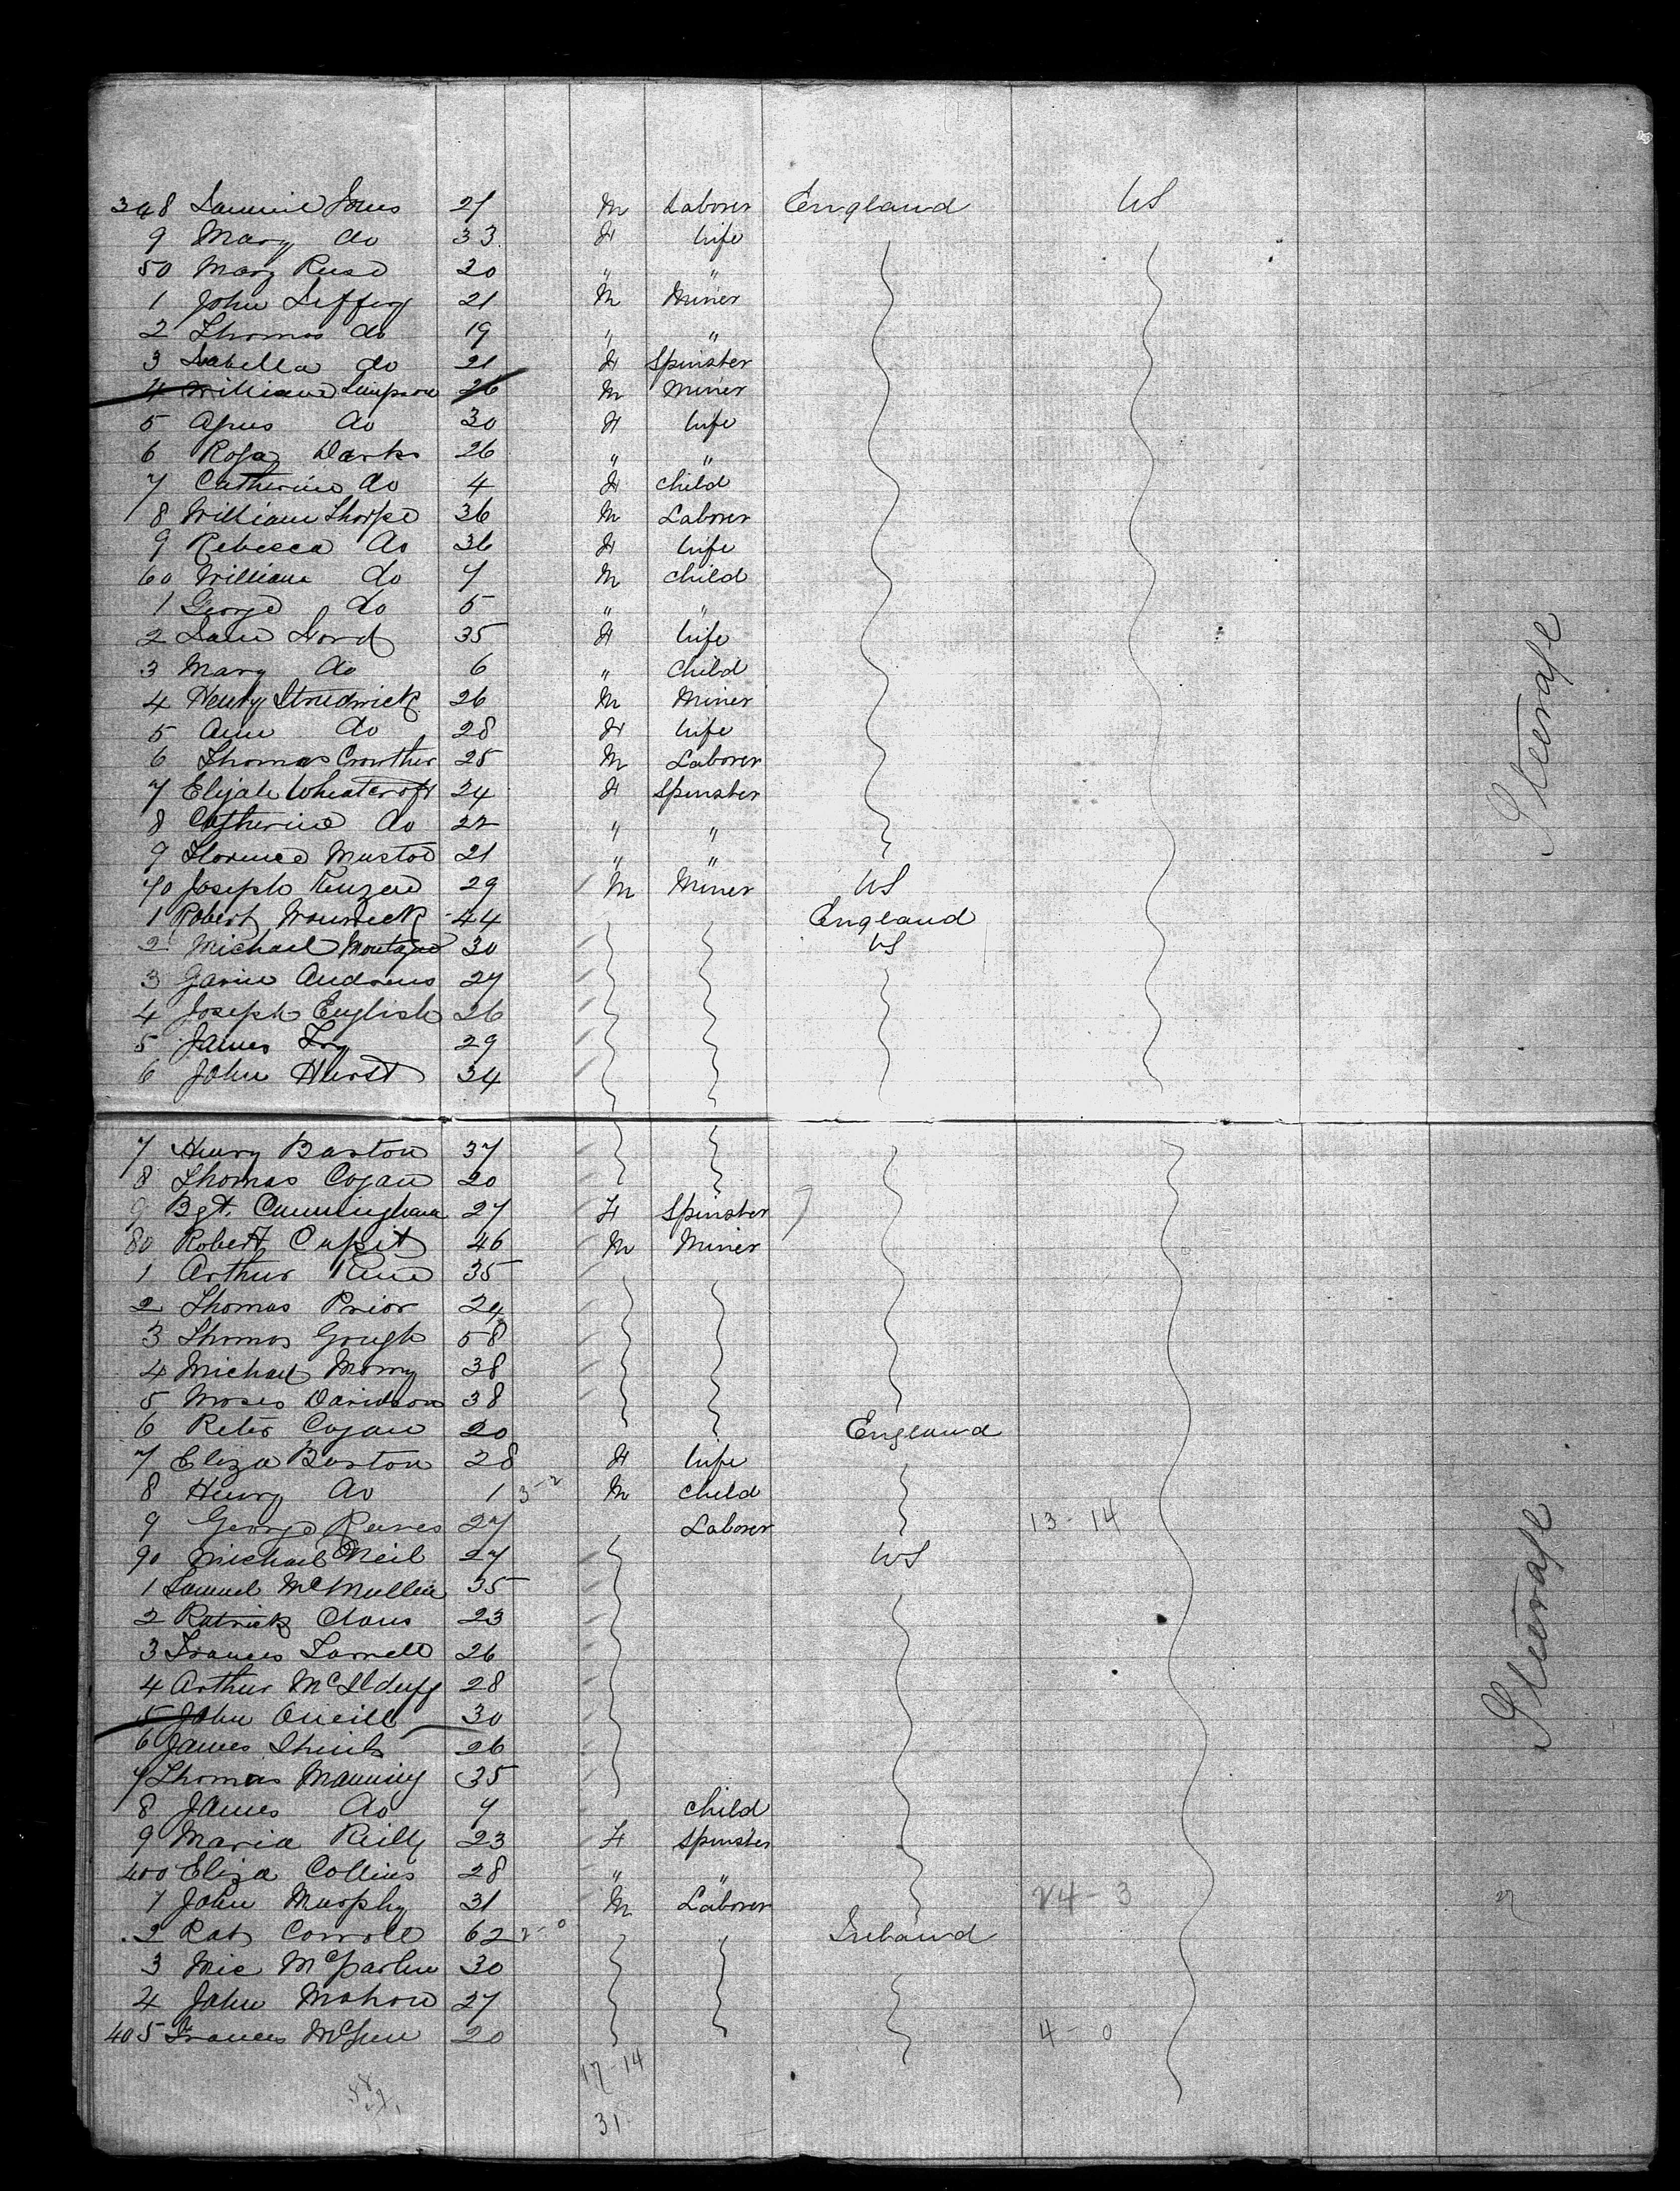 348 Dammie Jones 21 M Laborer England US
9 Mary do 33 F Wife
50 Mary Reese 20 " "
1 John Jeffery 21 M Miner
2 Thomas do 19 " "
3 Isabella do 21 F Spinster
4 William Simpson 26 M Miner
5 Agnes do 30 F Wife
6 Rosa Darks 26 " "
7 Catherine do 4 F Child
8 William Thorpe 36 M Laborer
9 Rebecca do 36 F Wife
60 William do 7 M Child
1 George do 5 " "
2 Jane Lord 35 F Wife
3 Mary do 6 " Child
4 Henry Strudwick 26 M Miner
5 Ann do 28 F Wife
6 Thomas Crowther 25 M Laborer
7 Elizah Wheatcroft 24 F Spinster
8 Catherine do 22 " "
9 Florence Mustoe 21 " "
70 Joseph 29 M Miner US
1 Robert 44 England
2 Michael Montague 30 US
3 Gavin Andrews 27
4 Joseph English 26
5 James Fry 29
6 John Hurst 34
Steerage
7 Henry Barton 37
8 Thomas Cogan 20
9 Bgt. Cunningham 27 F Spinster
80 Robert Cupit 46 M Miner
1 Arthur 35
2 Thomas Prior 24
3 Thomas Gough 58
4 Michael Morry 38
5 Moses Davidson 38
6 Peter Cogan 20 England
7 Eliza Barton 28 F Wife
8 Henry do 1 3-2 M Child
9 George Reeves 27 Laborer 13-14
90 Michael ONeil 27 US
1 Samuel McMullin 35
2 Patrick Claus 23
3 Frances Farrell 26
4 Arthur McIlduff 28
5 John Oneill 30
6 James Shiels 26
7 Thomas Manning 35
8 James do 7 Child
9 Maria Reilly 23 F Spinster
400 Eliza Collins 28 " "
1 John Murphy 31 M Laborer 24-3
2 Pat Carroll 62 2-0 Ireland
3 Mic McParlin 30
4 John Mahon 27
405 Frances McGinn 20 4-0
Steerage
17-14
31